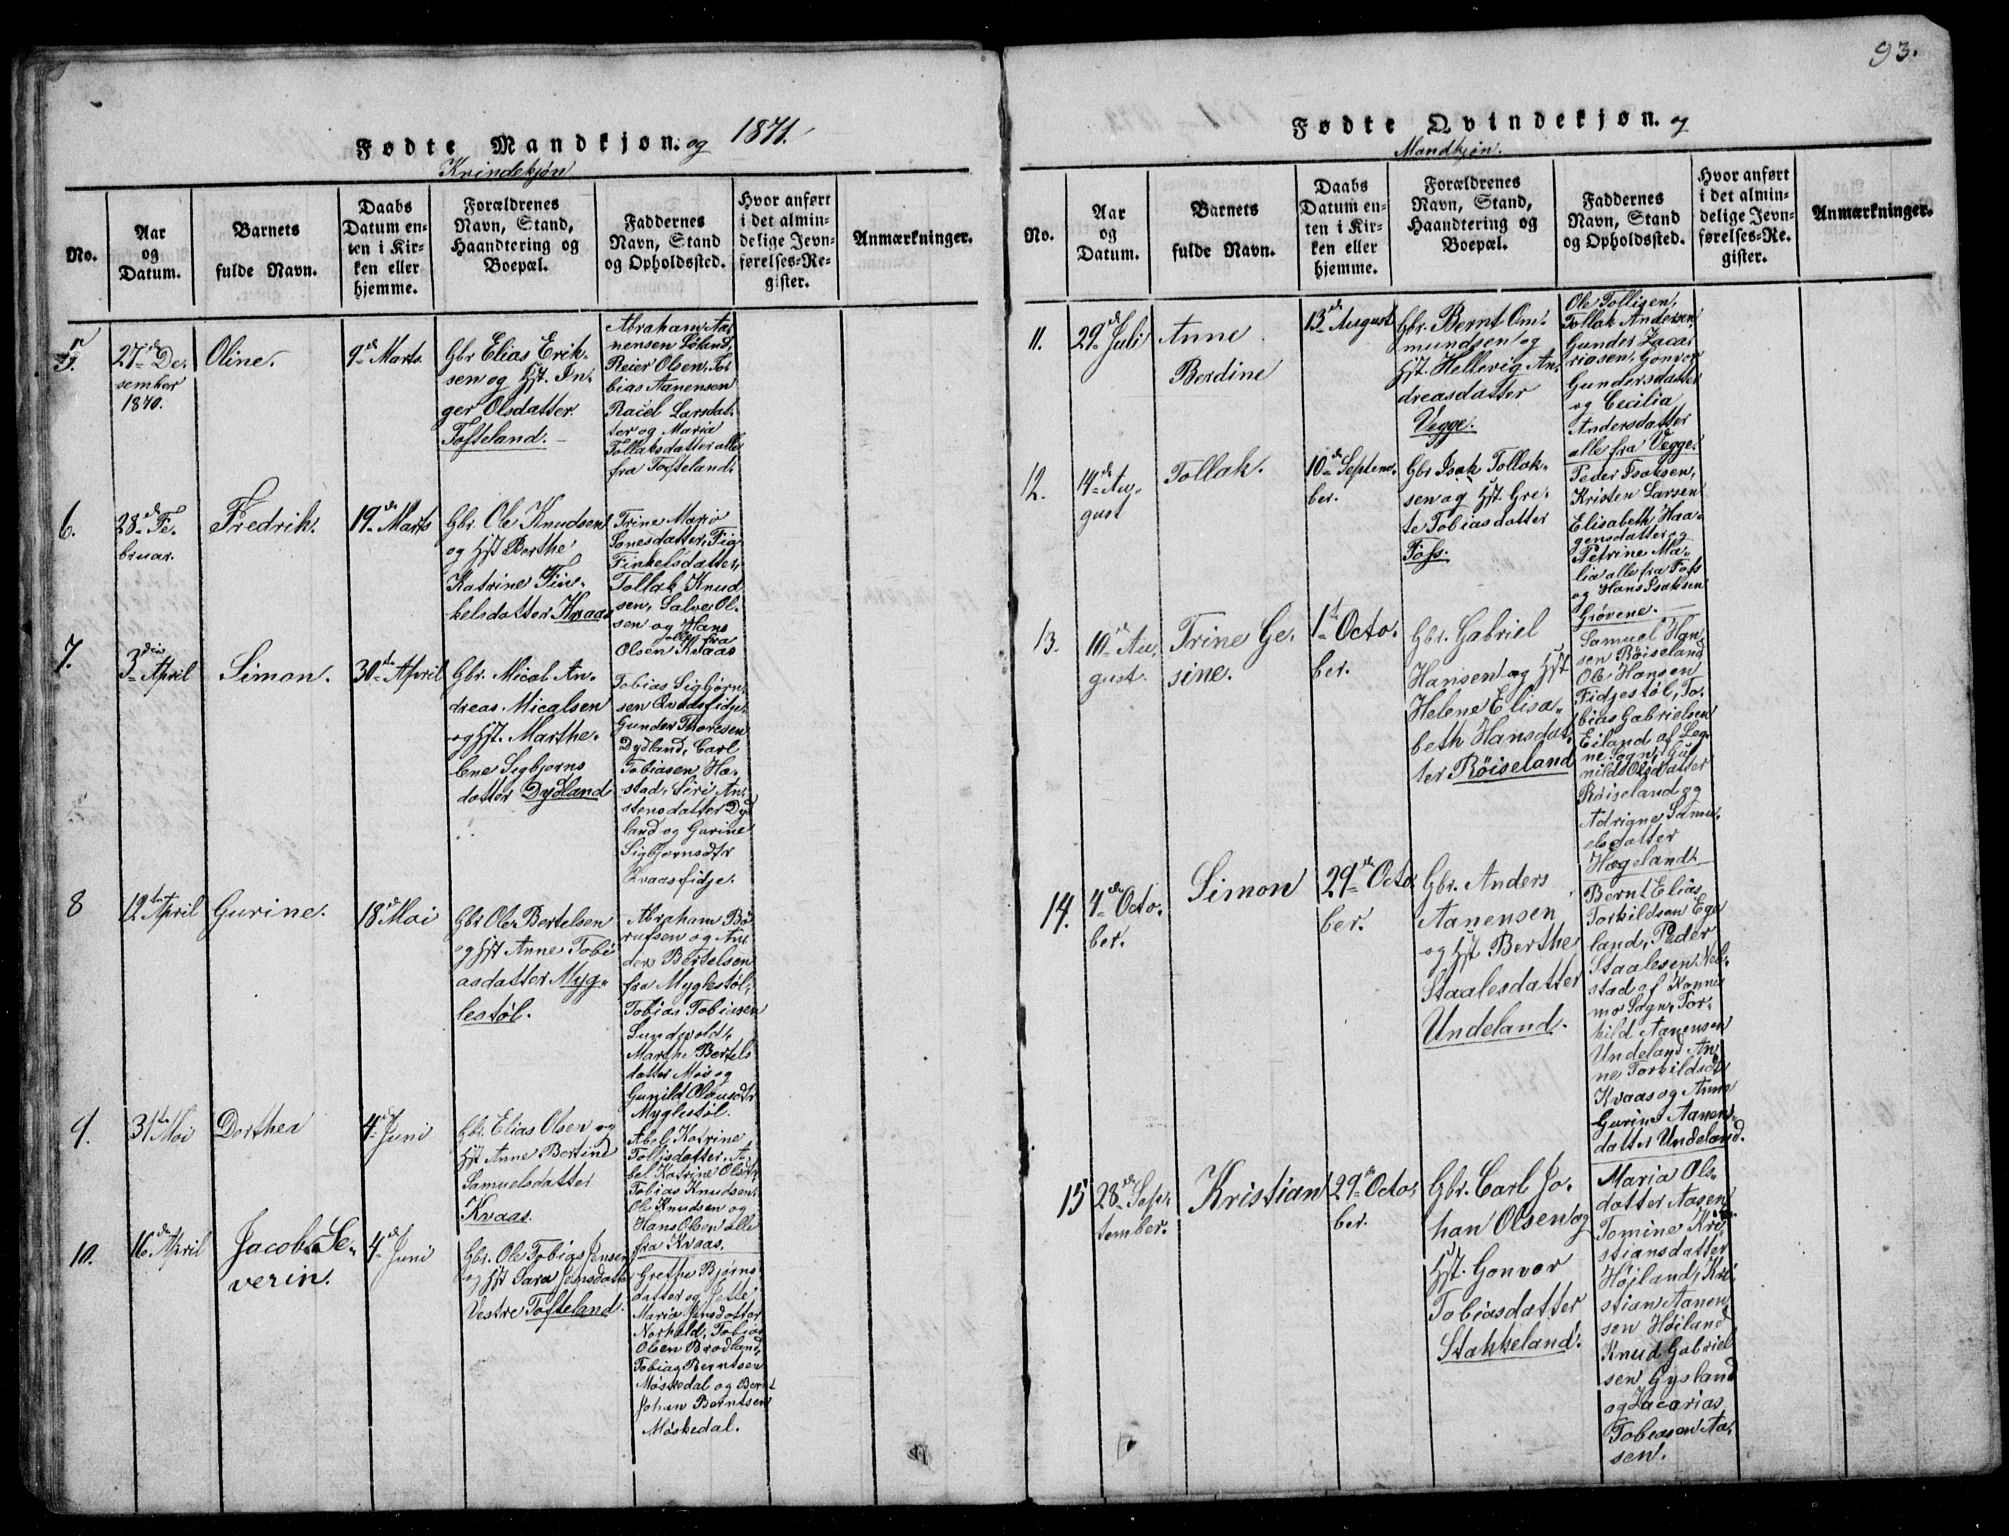 93.
Fødte Mandkjøn. og 1871.
Kvindekjøn
No.
Aar
og
Datum.
Barnets
fulde Navn.
Daabs
Datum en-
ten i Kir-
ken eller
hjemme.
Forældrenes
Navn, Stand,
Haandtering og
Boepæl.
Faddernes
Navn, Stand
og Opholdssted.
Hvor anført
i det almin-
delige Jevn-
førelses-Re-
gister.
Anmærkninger.
5.
27de De-
sember
1870.
Oline.
9de Marts
Gbr Elias Erik-
sen og Hst. In-
ger Olsdatter
Tofteland.
Abraham Aa-
nensen
Reier Olsen, To-
bias Aanensen
Racel Larsdat-
ter og Maria
Tollaksdatter alle
fra Tofteland.
6.
28de Fe-
bruar.
Fredrik.
19de Marts
Gbr. Ole Knudsen
og Hst Berthe
Katrine Fin-
kelsdatter Kvaas
Trine Maria
Tonesdatter,
Finkelsdatter,
Tollak Knud-
sen, Salve Ol-
sen og Hans
alle fra
Olsen Kvaas
7.
3die April
Simon.
30te April
Gbr. Mical An-
dreas Micalsen
og Hst. Marthe-
lene Sigbjørns
datter Dydland
Tobias Sigbjørn-
sen Qvaasfidje,
Gunder Thoresen
Dydland, Carl
Tobiasen Hæ-
stad, Siri An-
stensdatter Dyd
land og Gurine
Sigbjørnsdtr
Kvaasfidje.
8
12te April
Gurine.
18de Mai
Gbr Ole Bertelsen
og Hst Anne Tobi
asdatter Myg-
lestøl.
Abraham Bø-
rufsen og An-
ders Bertelsen
fra Myglestøl,
Tobias Tobiasen
Sundvold,
Marthe Bertels
datter Moi og
Gunild Olausdtr
Myglestøl.
9.
31te Mai
Dorthea
4de Juni
Gbr. Elias Olsen og
Hst Anne Bertine
Samuelsdatter
Kvaas.
Abel Katrine
Tollisdatter, A-
bel Katrine Olsdtr
Tobias Knudsen,
Ole Knudsen og
Hans Olsen alle
fra Kvaas.
10.
16de April
Jacob Se-
verin.
4de Juni
Gbr. Ole Tobias Jensen
og Hst Sara Jensdatter
Vestre Tofteland.
Grethe Bjørns-
datter og Jette
Maria Jensdatter
Tobias
Olsen Brødland,
Tobias Berntsen
Møskedal og Bernt
Johan Berntsen
Møskedal.
Fødte Qvindekjøn. og
Mandkjøn.
No.
Aar
og
Datum.
Barnets
fulde Navn.
Daabs
Datum en-
ten i Kir-
ken eller
hjemme.
Forældrenes
Navn, Stand,
Haandtering og
Boepæl.
Faddernes
Navn, Stand
og Opholdssted.
Hvor anført
i det almin-
delige Jevn-
førelses-Re-
gister.
Anmærkninger.
11.
29de Juli
Anne
Berdine
13de August
Gbr. Bernt Om-
mundsen og
Hst. Hellevig An-
dreasdatter
Vegge.
Ole Tollisen,
Tollak Andersen,
Gunder Zaca-
riasen, Gonvor
Gundersdatter
og Cecilia
Andersdatter
alle fra Vegge.
12.
14de Au-
gust
Tollak.
10de Septem-
ber.
Gbr. Isak Tollak-
sen og Hst. Gre-
te Tobiasdatter
Foss.
Peder Isaksen,
Kristen Larsen
Elisabeth Haa-
gensdatter og
Petrine Ma-
lia alle fra Foss
og Hans Isaksen
Grøvene.
13.
10de Au-
gust.
Trine Ge-
sine.
1ste Octo-
ber.
Gbr. Gabriel
Hansen og Hst
Helene Elisa-
beth Hansdat-
ter Røiseland
Samuel Han-
sen Røiseland
Ole Hansen
Fidjestøl, To-
bias Gabrielsen
Eiland af Løg-
ne Sogn, Gu-
nild Olsdatter
Røiseland og
Adrigne Samu-
elsdatter
Hægeland.
14.
4de Octo-
ber.
Simon
29de Octo
ber.
Gbr. Anders
Aanensen
og Hst Berthe
Staalesdatter
Undeland.
Bernt Elias
Torkildsen Ege
land, Peder
Staalesen
stad af Konnes
mo Sogn, Tor-
kild Aanensen
Undeland An-
ne Torkildsdtr
Kvaas og Anne
Gurine Aanens-
datter Undeland.
15
28de Sep-
tember.
Kristian
29de Octo
ber.
Gbr. Carl Jo-
han Olsen og
Hst. Gonvor
Tobiasdatter
Stakkeland.
Maria Ols-
datter Aasen
Tomine Kri-
stiansdatter
Høiland, Kri-
stian Aanen-
sen Høiland
Knud Gabriel
sen Gysland
og Zacarias
Tobiasen Aa-
sen.